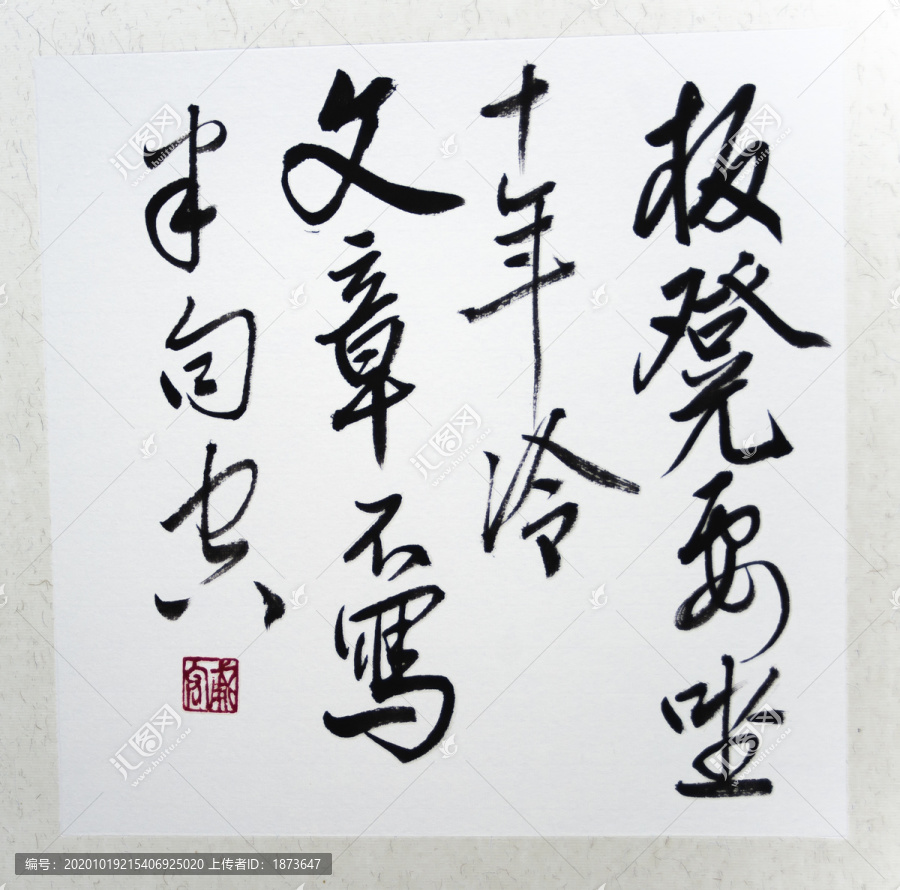 板凳要坐
十年冷
文章不寫
半句空
汇图网
www.huitu.com
编号：20201019215406925020 上传者ID：1873647